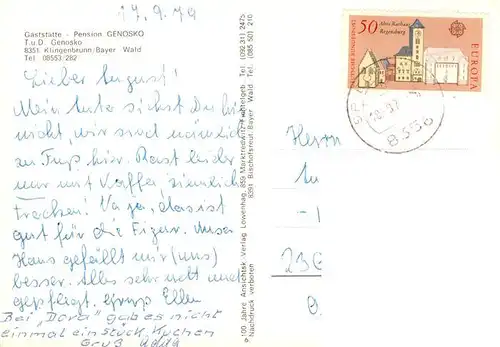 17.9.79
Gaststätte - Pension GENOSKO
T.u.D. Genosko
8351 Klingenbrunn/Bayer Wald
Tel 08553/282
Lieber August!
Mein Auto siehst Du hier
nicht, wir sind nämlich
zu Fuß hier. Rast leider
nur mit Kaffee, ziemlich
trocken! Na ja, das ist
gut für die Figur. Unser
Haus gefällt mir (uns)
besser. Alles sehr nett und
gepflegt. Gruß Ellen
Bei "Dora" gab es nicht
einmal ein stück Kuchen
Gruß
© 100 Jahre Ansichtsk.-Verlag Löwenhag, 859 Marktredwitz Tel (092 31) 2475
Nachdruck verboten 8391 Bischofsreut Bayer Wald Tel (085 50) 210
50 Altes Rathaus
Regensburg
DEUTSCHE BUNDESPOST
EUROPA
CEPT
8356
Herrn
-1
236